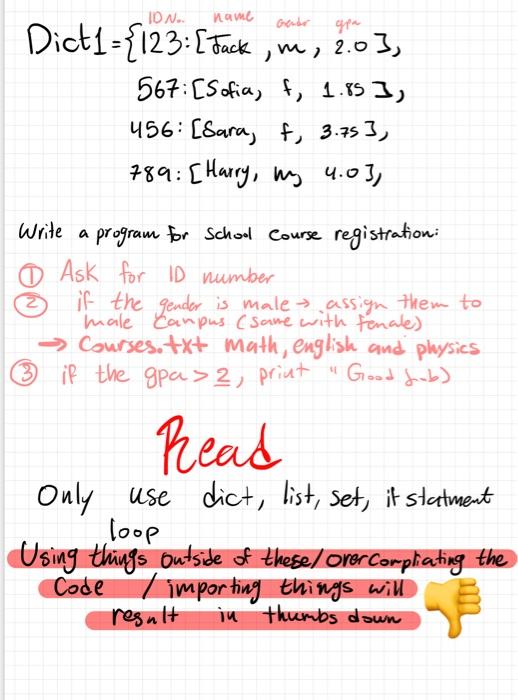 ID No. name gender gpa
Dict1={123:[Jack, m, 2.0],
567:[Sofia, f, 1.85],
456:[Sara, f, 3.75],
789:[Harry, m, 4.0],
Write a program for school course registration:
① Ask for ID number
② if the gender is male → assign them to
male campus (same with female)
→ Courses.txt math, english and physics
③ if the gpa > 2, print "Good job)
Read
Only use dict, list, set, if statment
loop
Using things outside of these/overcompliating the
Code / importing things will
result in thumbs down